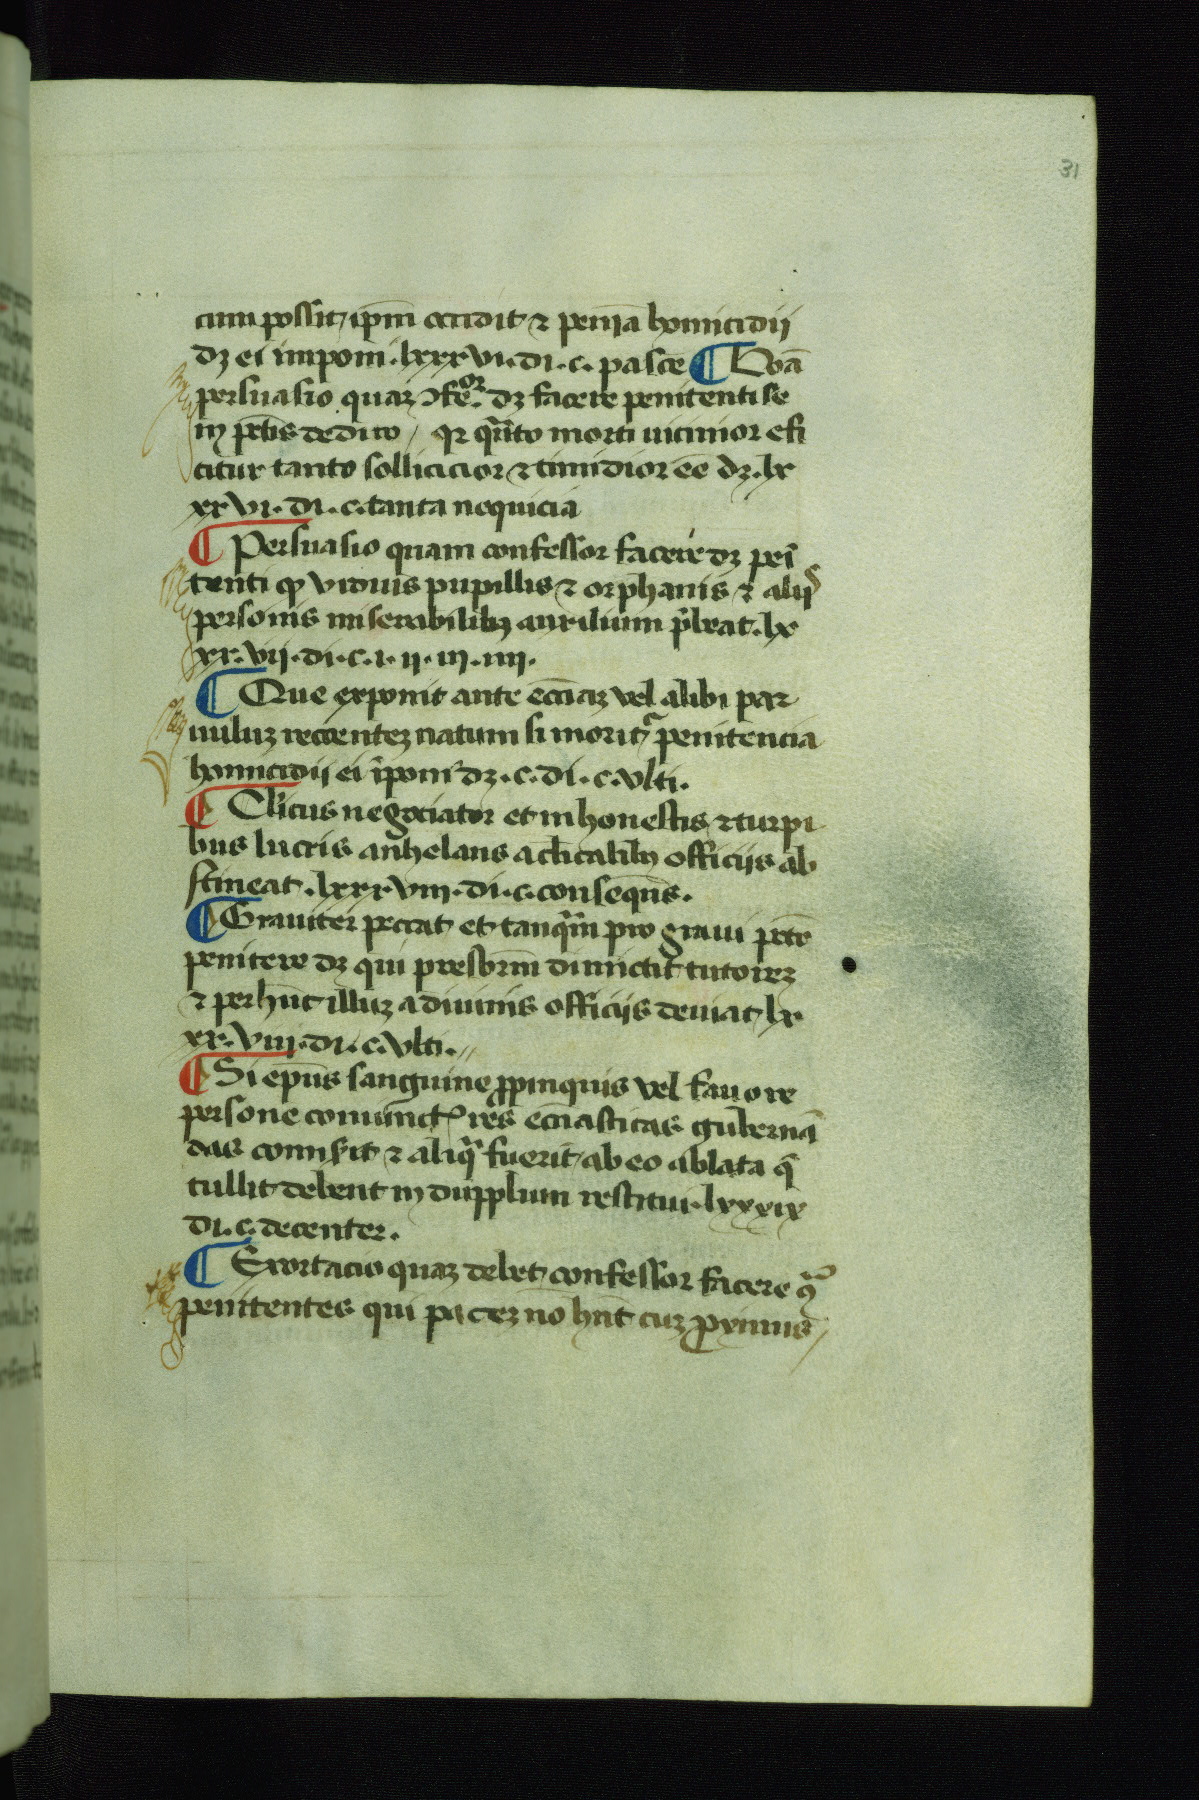 31
cum possit, ip̅m occidit ⁊ penia̅ homicidii
dꝫ ei imponi .lxxxvi. di. c. pasce ¶ Bo̅a
persuasio quaꝫ ꝯfe.or dꝫ facere penitenti se
in pctis̅ dedito / qꝛ qua̅to morti uicinior efi
citur tanto sollicicior ⁊ timidior ee̅ dꝫ. lx
xxvi. di. c. tanta nequicia
¶ Persuasio quam confessor facere dꝫ peni̅
tenti ꝙ viduis pupillis ⁊ orphanis ⁊ aliis
personis miserabilibꝫ auxilium p̅beat. lx
xx. vii. di. c. i. ii. iii. iiii.
¶ Que exponit ante eccia̅ꝫ vel alibi par
uuluꝫ recenteꝫ natum si morit᷑ penitencia
homicidii ei i̅poni dꝫ. c. di. c. vlti.
¶ Clicus negociator et inhonestis ⁊ turpi
bus lucris anhelans a clicalibꝫ officiis ab
stineat. lxxxviii. di. c. consequn̅s.
¶ Grauiter peccat, et tanqua̅m pro graui pcto̅
penitere dꝫ qui presbrm̅ dimictit tutoreꝫ
⁊ per hu̅c illuꝫ a diuinis officiis deuiat, lx
xx. viii. di. c. vlti. //
¶ Si epu̅s sanguine ꝓpinquis vel fauore
persone coniuncte res eccia̅sticas guberna̅
das comisit, ⁊ aliqua̅ fuerit, ab eo ablata q̅
tullit debent in dupplum restitui. lxxxix
di. c. decenter.
¶ Exortacio quaꝫ debet, confessor facere ꝯᷓ
penitentes qui paceꝫ no̅ hn̅t cuꝫ ꝓximis /